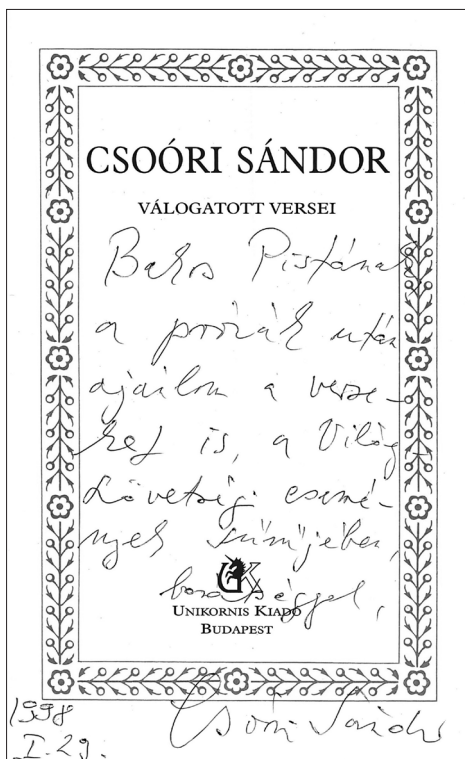 CSOÓRI SÁNDOR
VÁLOGATOTT VERSEI
Bakos Pistának
a prózák után
ajánlom a verse-
ket is, a Világ-
szövetségi esemé-
nyek sűrűjében,
barátsággal,
UNIKORNIS KIADÓ
BUDAPEST
Csoóri Sándor
1998
I. 29.